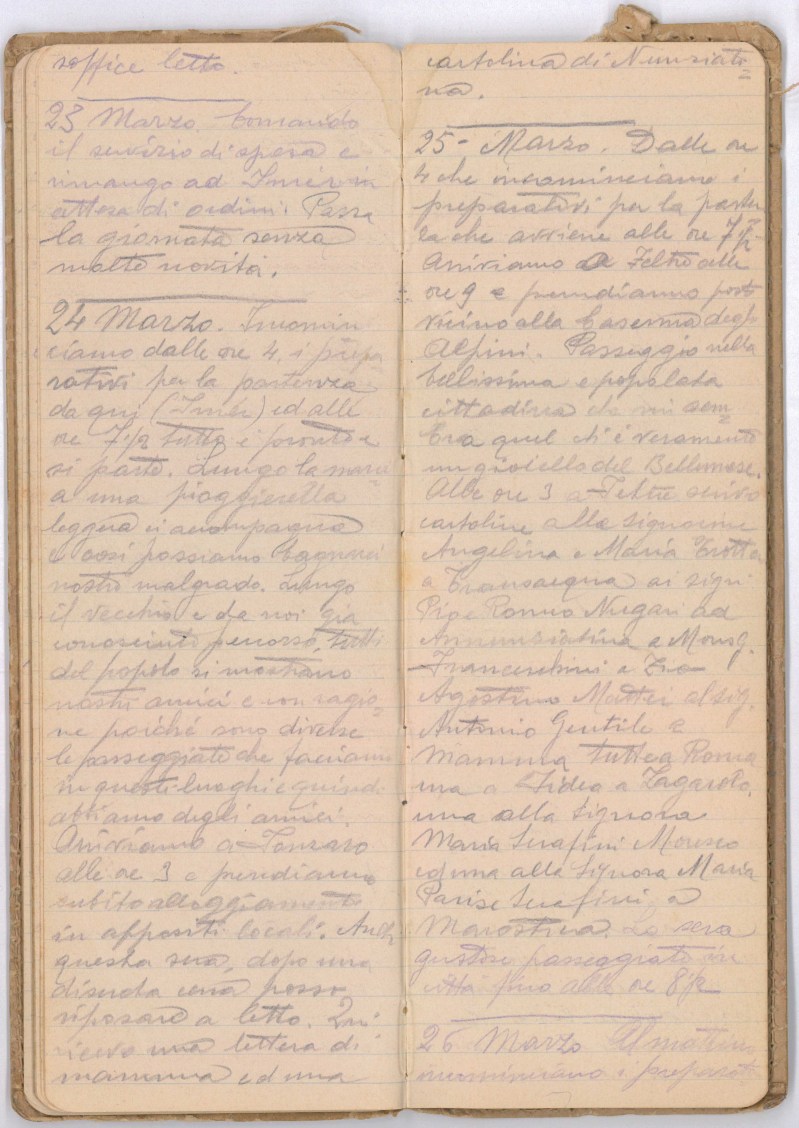 soffice letto.
23 Marzo. Comando
il servizio di spesa e
rimango ad Imér in
attesa di ordini. Passa
la giornata senza
molte novità.
24 Marzo. Incomin
ciamo dalle ore 4, i prepa
rativi per la partenza
da qui (Imér) ed alle
ore 7 1/2 tutto è pronto e
si parte. Lungo la marci
a una pioggierella
leggera ci accompagna
e così possiamo bagnarci
nostro malgrado. Lungo
il vecchio e da noi già
conosciuto percorso, tutti
del popolo si mostrano
nostri amici e con ragio=
ne poiché sono diverse
le passeggiate che facciamo
in questi luoghi e quindi
abbiamo degli amici.
Arriviamo a Fonzaso
alle ore 3 e prendiamo
subito alloggiamento
in appositi locali. Anche
questa sera, dopo una
discreta cena posso
riposare a letto. Qui
ricevo una lettera di
mamma ed una
cartolina di Nunziati=
na.
25 - Marzo. Dalle ore
4 che incominciamo i
preparativi per la parten
za che avviene alle ore 7 1/2.
Arriviamo a Feltre alle
ore 9 e prendiamo posto
vicino alla Caserma degli
Alpini. Passeggio nella
bellissima e popolata
cittadina che mi sem=
bra quel ch'è veramente
un gioiello del Bellunese.
Alle ore 3 a Feltre scrivo
cartoline alle signorine
Angelina e Maria Trotter
a Transacqua ai sigri
Pio e Romeo Nugari ad
Annunziatina a Monsig.
Franceschini a Zio
Agostino Mattei al sig.
Antonio Gentile a
Mamma tutte a Roma
una a Fidea a Zagarolo,
una alla Signora
Maria Serafini Moresco
ed una alla Signora Maria
Parise Serafini a
Marostica. La sera
gustose passeggiate in
città fino alle ore 8 1/2
26 Marzo Al mattino
incominciano i preparati